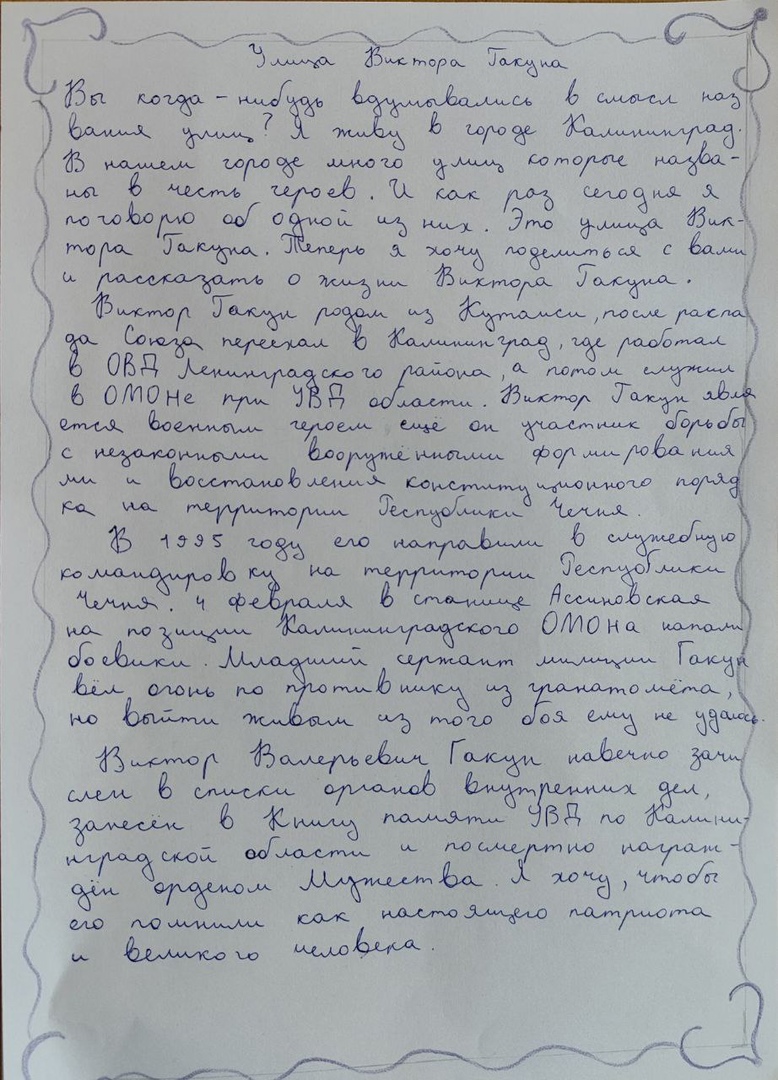 Улица Виктора Гакуна
Вы когда-нибудь вдумывались в смысл наз
вания улиц? Я живу в городе Калининград.
В нашем городе много улиц которые назва-
ны в честь героев. И как раз сегодня я
поговорю об одной из них. Это улица Вик-
тора Гакуна. Теперь я хочу поделиться с вами
и рассказать о жизни Виктора Гакуна.
Виктор Гакун родом из Кутаиси, после распа
да Союза переехал в Калининград, где работал
в ОВД Ленинградского района, а потом служил
в ОМОНе при УВД области. Виктор Гакун явля
ется военным героем ещё он участник борьбы
с незаконными вооружёнными формирования
ми и восстановления конституционного поряд
ка на территории Республики Чечня.
В 1995 году его направили в служебную
командировку на территории Республики
Чечня. 4 февраля в станице Ассиновская
на позиции Калининградского ОМОНа напали
боевики. Младший сержант милиции Гакун
вёл огонь по противнику из гранатомёта,
но выйти живым из того боя ему не удалось.
Виктор Валерьевич Гакун навечно зачи
слен в списки органов внутренних дел,
занесён в Книгу памяти УВД по Калини-
нградской области и посмертно награж-
дён орденом Мужества. Я хочу, чтобы
его помнили как настоящего патриота
и великого человека.